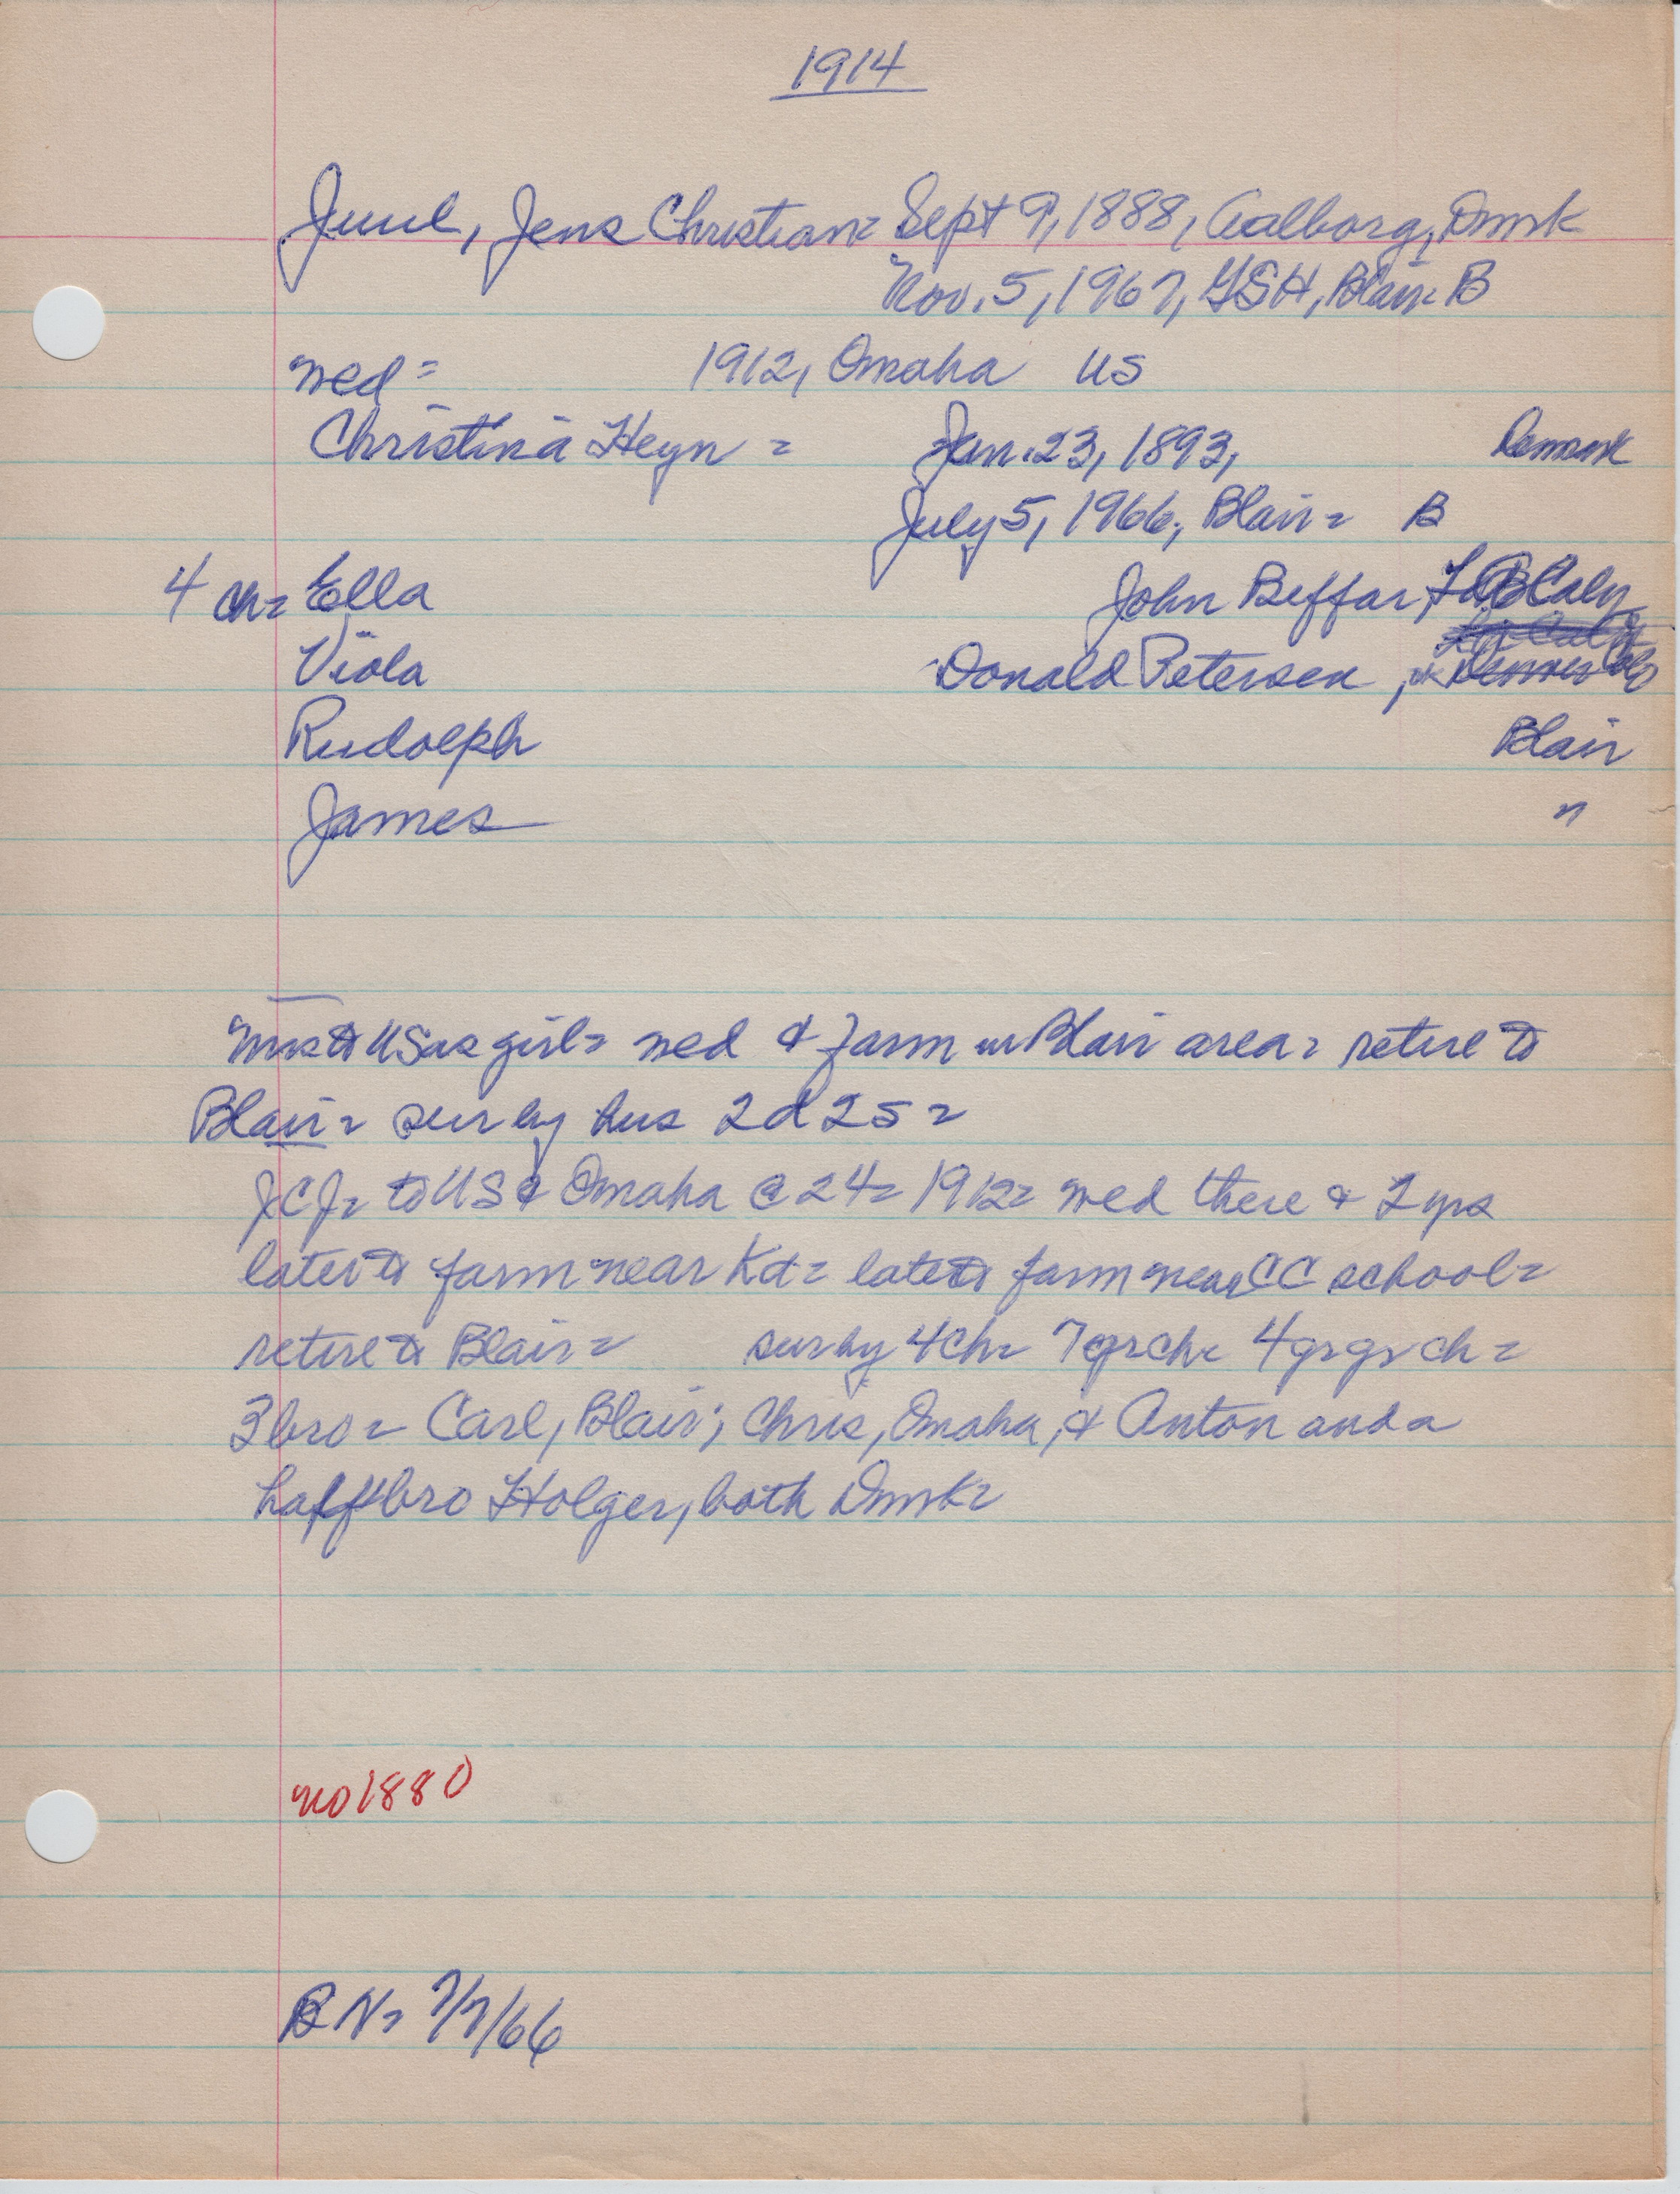 1914
Juul, Jens Christian= Sept 9, 1888, Aalborg, Dmrk
Nov. 5, 1967, GSH, Blair= B
wed= 1912, Omaha US
Christina Heyn = Jan. 23, 1893, Denmark
July 5, 1966, Blair= B
4 ch= Ella John Beffar,
Viola Donald Petersen,
Rudolph Blair
James "
Mrs to US as girl= wed & farm in Blair area= retire to
Blair= sur by hus 2d 2s=
JCJ= to US & Omaha @ 24= 1912= wed there & 2 yrs
later to farm near Kd= later to farm near CC school=
retire to Blair= sur by 4 ch= 7 grch= 4 grgr ch=
3 bro= Carl, Blair; Chris, Omaha, & Anton and a
halfbro Holger, both Dmrk=
no 1880
BN= 7/7/66